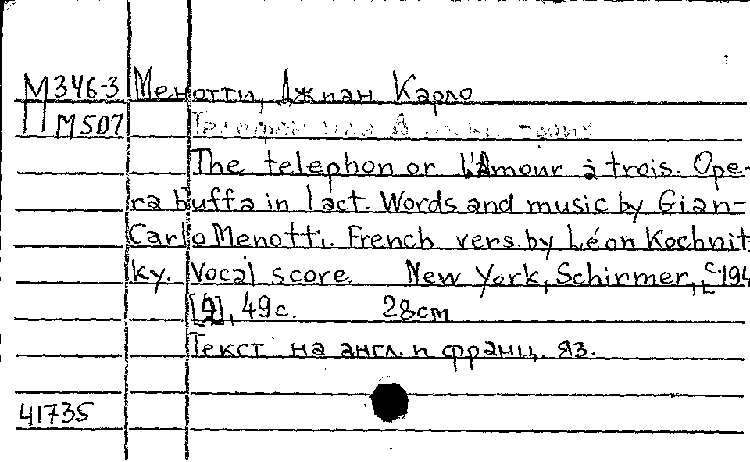 М346-3 Менотти, Джиан Карло
П М507 Телефон или
The telephon or L'Amour à trois. Ope-
ra buffa in 1 act. Words and music by Gian-
Carlo Menotti. French vers by Léon Kochnit
ky. Vocal score. New York, Schirmer, c 194
[2], 49 c. 28cm
Текст на англ. и франц. яз.
41735